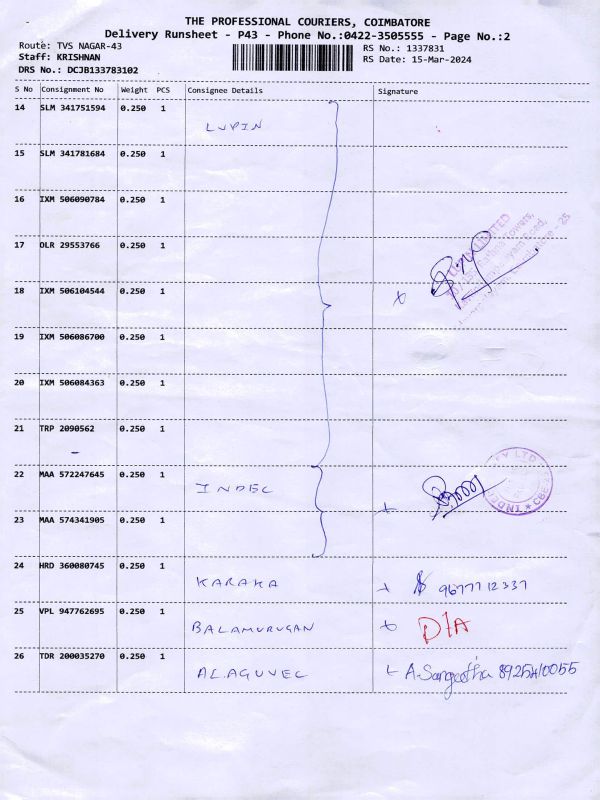 THE PROFESSIONAL COURIERS, COIMBATORE
Delivery Runsheet - P43 - Phone No.:0422-3505555 - Page No.:2
Route: TVS NAGAR-43
RS No.: 1337831
Staff: KRISHNAN
RS Date: 15-Mar-2024
DRS No.: DCJB133783102
S No Consignment No Weight PCS Consignee Details Signature
14 SLM 341751594 0.250 1
LUPIN
15 SLM 341781684 0.250 1
16 IXM 506090784 0.250 1
17 DLR 29553766 0.250 1
LIMITED
Towers,
- 25
18 IXM 506104544 0.250 1
19 IXM 506086700 0.250 1
20 IXM 506084363 0.250 1
21 TRP 2090562 0.250 1
22 MAA 572247645 0.250 1
INDEC
23 MAA 574341905 0.250 1
24 HRD 360080745 0.250 1
KARAKA 9677712337
25 VPL 947762695 0.250 1
BALAMURUGAN D/A
26 TDR 200035270 0.250 1
ALAGUVEL A.Sangeetha 8925410055